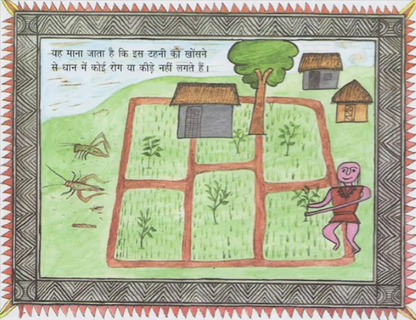 यह माना जाता है कि इस टहनी को खोंसने
से धान में कोई रोग या कीड़े नहीं लगते हैं।